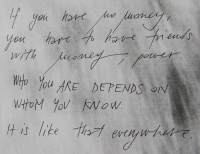 If you have no money,
you have to have friends
with money, power.
WHO YOU ARE DEPENDS ON
WHOM YOU KNOW.
It is like that everywhere.